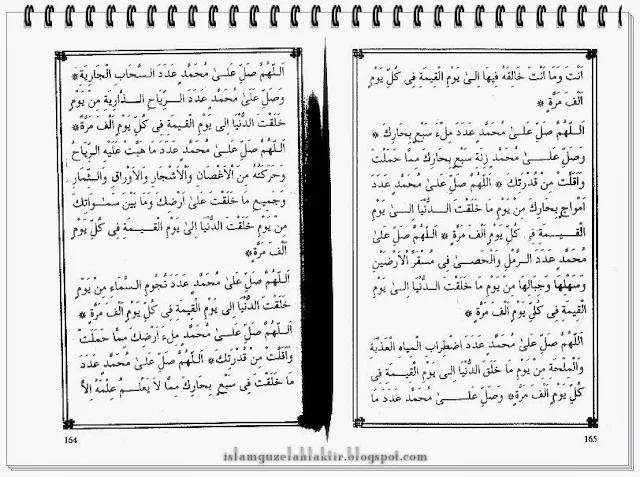 اَللّٰهُمَّ صَلِّ عَلٰى مُحَمَّدٍ عَدَدَ السَّحَابِ الْجَارِيَةِ *
وَصَلِّ عَلٰى مُحَمَّدٍ عَدَدَ الرِّيَاحِ الذَّارِيَةِ مِنْ يَوْمِ
خَلَقْتَ الدُّنْيَا اِلٰى يَوْمِ الْقِيٰمَةِ فِى كُلِّ يَوْمٍ اَلْفَ مَرَّةٍ *
اَللّٰهُمَّ صَلِّ عَلٰى مُحَمَّدٍ عَدَدَ مَا هَبَّتْ عَلَيْهِ الرِّيَاحُ
وَحَرَكَتْهُ مِنَ الْاَغْصَانِ وَالْاَشْجَارِ وَالْاَوْرَاقِ وَالثِّمَارِ
وَجَمِيعِ مَا خَلَقْتَ عَلٰى اَرْضِكَ وَمَا بَيْنَ سَمٰوَاتِكَ
مِنْ يَوْمِ خَلَقْتَ الدُّنْيَا اِلٰى يَوْمِ الْقِيٰمَةِ فِى كُلِّ يَوْمٍ
اَلْفَ مَرَّةٍ *
اَللّٰهُمَّ صَلِّ عَلٰى مُحَمَّدٍ عَدَدَ نُجُومِ السَّمَاءِ مِنْ يَوْمِ
خَلَقْتَ الدُّنْيَا اِلٰى يَوْمِ الْقِيٰمَةِ فِى كُلِّ يَوْمٍ اَلْفَ مَرَّةٍ *
اَللّٰهُمَّ صَلِّ عَلٰى مُحَمَّدٍ مِلْءَ اَرْضِكَ مِمَّا حَمَلَتْ
وَاَقَلَّتْ مِنْ قُدْرَتِكَ * اَللّٰهُمَّ صَلِّ عَلٰى مُحَمَّدٍ عَدَدَ
مَا خَلَقْتَ فِى سَبْعِ بِحَارِكَ مِمَّا لَا يَعْلَمُ عِلْمَهُ اِلَّا
164
اَنْتَ وَمَا اَنْتَ خَالِقُهُ فِيهَا اِلٰى يَوْمِ الْقِيٰمَةِ فِى كُلِّ يَوْمٍ
اَلْفَ مَرَّةٍ *
اَللّٰهُمَّ صَلِّ عَلٰى مُحَمَّدٍ عَدَدَ مِلْءِ سَبْعِ بِحَارِكَ *
وَصَلِّ عَلٰى مُحَمَّدٍ زِنَةَ سَبْعِ بِحَارِكَ مِمَّا حَمَلَتْ
وَاَقَلَّتْ مِنْ قُدْرَتِكَ * اَللّٰهُمَّ صَلِّ عَلٰى مُحَمَّدٍ عَدَدَ
اَمْوَاجِ بِحَارِكَ مِنْ يَوْمِ مَا خَلَقْتَ الدُّنْيَا اِلٰى يَوْمِ
الْقِيٰمَةِ فِى كُلِّ يَوْمٍ اَلْفَ مَرَّةٍ * اَللّٰهُمَّ صَلِّ عَلٰى
مُحَمَّدٍ عَدَدَ الرَّمْلِ وَالْحَصٰى فِى مُسْتَقَرِّ الْاَرْضِينَ
وَسَهْلِهَا وَجِبَالِهَا مِنْ يَوْمِ مَا خَلَقْتَ الدُّنْيَا اِلٰى يَوْمِ
الْقِيٰمَةِ فِى كُلِّ يَوْمٍ اَلْفَ مَرَّةٍ *
اَللّٰهُمَّ صَلِّ عَلٰى مُحَمَّدٍ عَدَدَ اضْطِرَابِ الْمِيَاهِ الْعَذْبَةِ
وَالْمِلْحَةِ مِنْ يَوْمِ مَا خَلَقَ الدُّنْيَا اِلٰى يَوْمِ الْقِيٰمَةِ فِى
كُلِّ يَوْمٍ اَلْفَ مَرَّةٍ * وَصَلِّ عَلٰى مُحَمَّدٍ عَدَدَ مَا
165
islamguzelahlaktir.blogspot.com